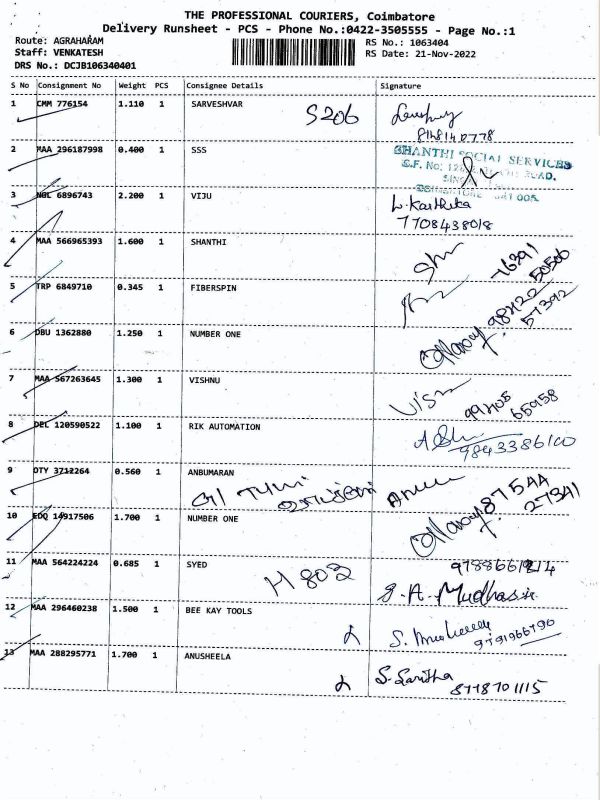 THE PROFESSIONAL COURIERS, Coimbatore
Delivery Runsheet - PCS - Phone No.:0422-3505555 - Page No.:1
Route: AGRAHARAM
Staff: VENKATESH
DRS No.: DCJB106340401
RS No.: 1063404
RS Date: 21-Nov-2022
S No Consignment No Weight PCS Consignee Details Signature
1 CMM 776154 1.110 1 SARVESHVAR S206
8148140778
2 MAA 296187998 0.400 1 SSS
SHANTHI SOCIAL SERVICES
3 NGL 6896743 2.200 1 VIJU L. Karthika
7708438018
4 MAA 566965393 1.600 1 SHANTHI
76391
50506
5 TRP 6849710 0.345 1 FIBERSPIN
98422
57392
6 DBU 1362880 1.250 1 NUMBER ONE
7 MAA 567263645 1.300 1 VISHNU
99405
65958
8 DEL 120590522 1.100 1 RIK AUTOMATION
9843386100
9 DTY 3712264 0.560 1 ANBUMARAN
87544
27341
10 EDQ 14917506 1.700 1 NUMBER ONE
11 MAA 564224224 0.685 1 SYED H 803
12 MAA 296460238 1.500 1 BEE KAY TOOLS
9791966790
13 MAA 288295771 1.700 1 ANUSHEELA S. Saritha
8778701115